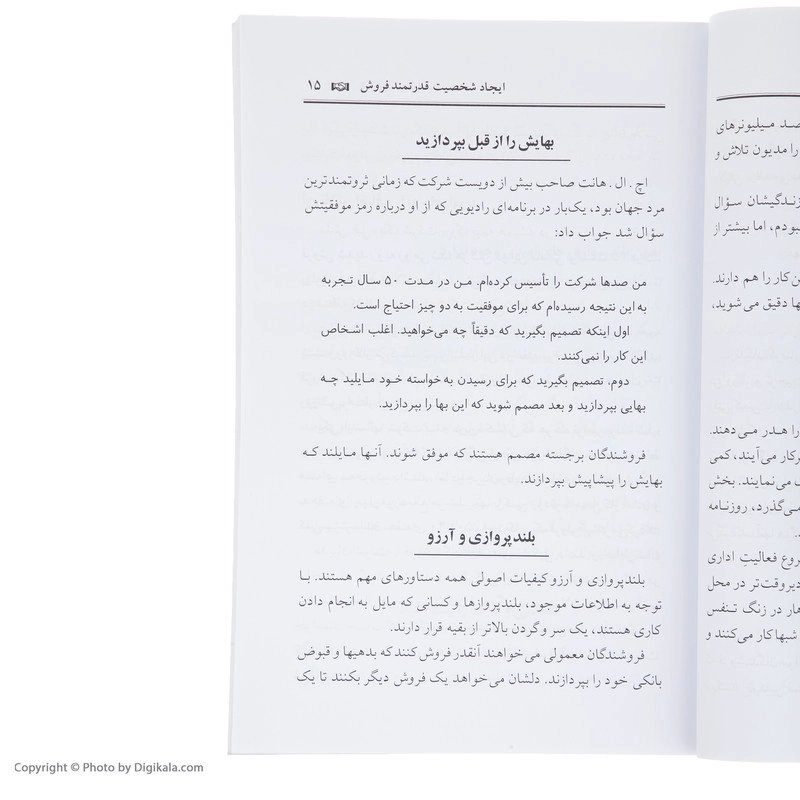 ایجاد شخصیت قدرتمند فروش ۱۵
بهایش را از قبل بپردازید
اچ . ال . هانت صاحب بیش از دویست شرکت که زمانی ثروتمندترین
مرد جهان بود، یک‌بار در برنامه‌ای رادیویی که از او درباره رمز موفقیتش
سؤال شد جواب داد:
من صدها شرکت را تأسیس کرده‌ام. من در مدت ۵۰ سال تجربه
به این نتیجه رسیده‌ام که برای موفقیت به دو چیز احتیاج است.
اول اینکه تصمیم بگیرید که دقیقاً چه می‌خواهید. اغلب اشخاص
این کار را نمی‌کنند.
دوم، تصمیم بگیرید که برای رسیدن به خواسته خود مایلید چه
بهایی بپردازید و بعد مصمم شوید که این بها را بپردازید.
فروشندگان برجسته مصمم هستند که موفق شوند. آنها مایلند که
بهایش را پیشاپیش بپردازند.
بلندپروازی و آرزو
بلندپروازی و آرزو کیفیات اصولی همه دستاورهای مهم هستند. با
توجه به اطلاعات موجود، بلندپروازها و کسانی که مایل به انجام دادن
کاری هستند، یک سر و گردن بالاتر از بقیه قرار دارند.
فروشندگان معمولی می‌خواهند آنقدر فروش کنند که بدهیها و قبوض
بانکی خود را بپردازند. دلشان می‌خواهد یک فروش دیگر بکنند تا یک
صد میلیونرهای
را مدیون تلاش و
زندگیشان سؤال
نبودم، اما بیشتر از
این کار را هم دارند.
ها دقیق می‌شوید،
را هدر می‌دهند.
رکار می‌آیند، کمی
می‌نمایند. بخش
می‌گذرد، روزنامه
روع فعالیتِ اداری
دیروقت‌تر در محل
هار در زنگ تنفس
شبها کار می‌کنند و
Copyright © Photo by Digikala.com